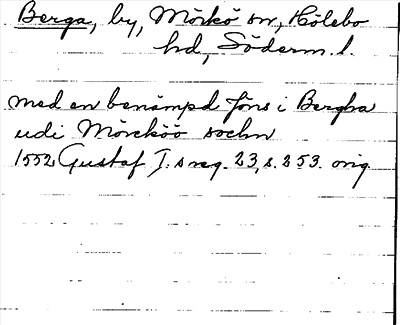 Berga, by, Mörkö sn, Hölebo
hd, Söderm. l.
med en benämpd Jöns i Bergha
udi Mörcköö sochn
1552 Gustaf I:s reg. 23, s. 253. orig